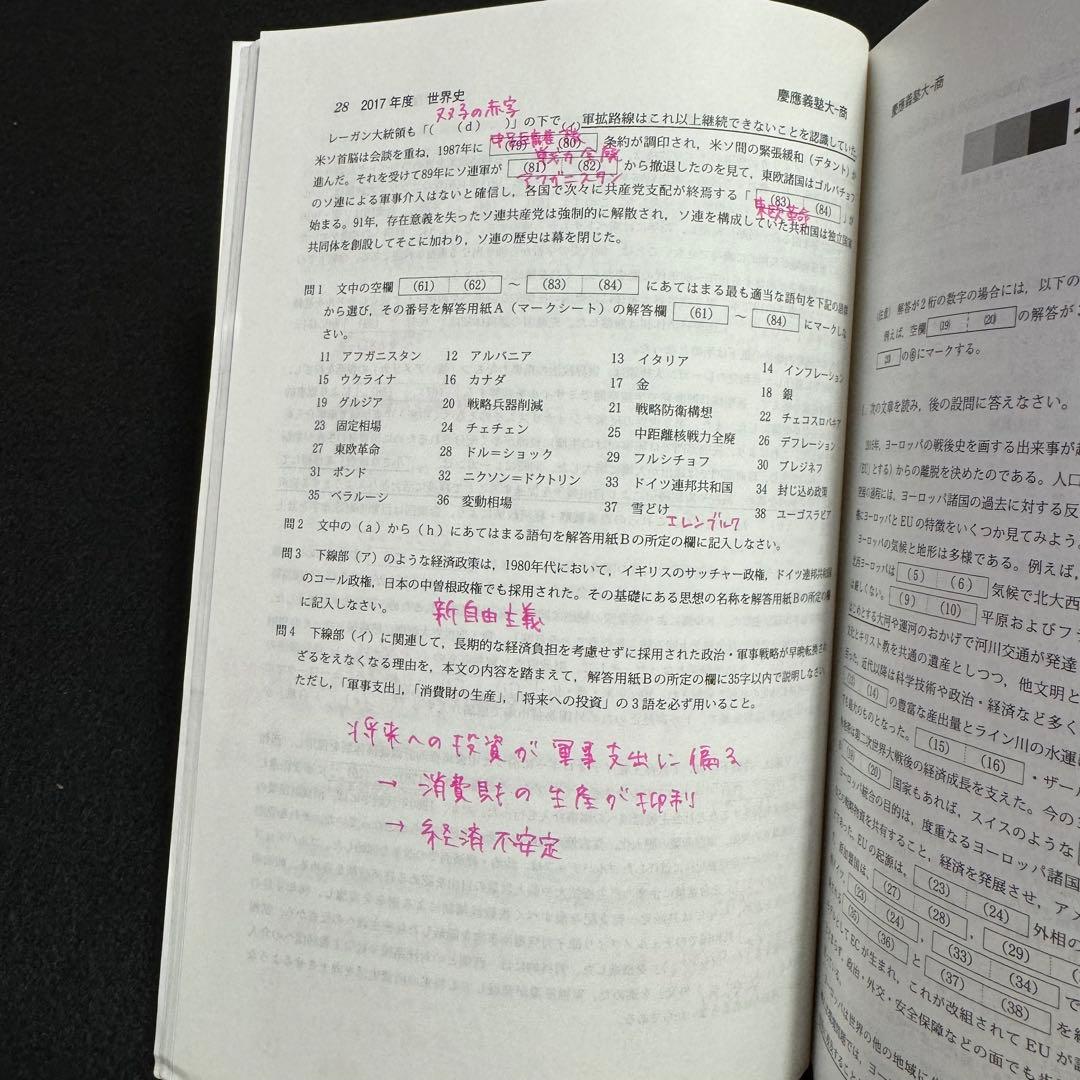 28 2017年度 世界史
慶應義塾大-商
双子の赤字
レーガン大統領も「( (d) )」の下で,(イ)軍拡路線はこれ以上継続できないことを認識していた
米ソ首脳は会談を重ね, 1987年に (79) (80) 条約が調印され, 米ソ間の緊張緩和(デタント)が
戦力全廃
進んだ。それを受けて89年にソ連軍が (81) (82) から撤退したのを見て, 東欧諸国はゴルバチョフ
アフガニスタン
のソ連による軍事介入はないと確信し, 各国で次々に共産党支配が終焉する「 (83) (84) 」が
東欧革命
始まる。91年, 存在意義を失ったソ連共産党は強制的に解散され, ソ連を構成していた共和国は独立国家
共同体を創設してそこに加わり, ソ連の歴史は幕を閉じた。
問1 文中の空欄 (61) (62) ~ (83) (84) にあてはまる最も適当な語句を下記の語群
から選び, その番号を解答用紙A(マークシート)の解答欄 (61) ~ (84) にマークしな
さい。
11 アフガニスタン 12 アルバニア 13 イタリア 14 インフレーション
15 ウクライナ 16 カナダ 17 金 18 銀
19 グルジア 20 戦略兵器削減 21 戦略防衛構想 22 チェコスロバキア
23 固定相場 24 チェチェン 25 中距離核戦力全廃 26 デフレーション
27 東欧革命 28 ドル=ショック 29 フルシチョフ 30 ブレジネフ
31 ポンド 32 ニクソン=ドクトリン 33 ドイツ連邦共和国 34 封じ込め政策
35 ベラルーシ 36 変動相場 37 雪どけ 38 ユーゴスラビア
エレンブルク
問2 文中の(a)から(h)にあてはまる語句を解答用紙Bの所定の欄に記入しなさい。
問3 下線部(ア)のような経済政策は, 1980年代において, イギリスのサッチャー政権, ドイツ連邦共和国
のコール政権, 日本の中曽根政権でも採用された。その基礎にある思想の名称を解答用紙Bの所定の欄
に記入しなさい。
新自由主義
問4 下線部(イ)に関連して, 長期的な経済負担を考慮せずに採用された政治・軍事戦略が早晩転換さ
ざるをえなくなる理由を, 本文の内容を踏まえて, 解答用紙Bの所定の欄に35字以内で説明しなさい
ただし,「軍事支出」,「消費財の生産」,「将来への投資」の3語を必ず用いること。
将来への投資が軍事支出に偏る
→ 消費財の生産が抑制
→ 経済不安定
慶應義塾大-商
(注意) 解答が2桁の数字の場合には, 以下の
例えば, 空欄 (19) (20) の解答が
(20) の⑥にマークする。
次の文章を読み, 後の設問に答えなさい。
ヨーロッパの戦後史を画する出来事が
からの離脱を決めたのである。人口
ヨーロッパ諸国の過去に対する反
ヨーロッパとEUの特徴をいくつか見てみよう
ヨーロッパの気候と地形は多様である。例えば,
(5) (6) 気候で北大西
は厳しくない。 (9) (10) 平原およびフ
はじめとする大河や運河のおかげで河川交通が発達
とキリスト教を共通の遺産としつつ, 他文明と
近代以降は科学技術や政治・経済など多く
(14) の豊富な産出量とライン川の水運
なものとなった。 (15) (16) ・ザール
第二次世界大戦後の経済成長を支えた。今の
(20) 国家もあれば, スイスのような
ヨーロッパ統合の目的は, 度重なるヨーロッパ諸国
を共有すること, 経済を発展させ, アメ
EUの起源は, (23) (24) 外相の
(27) (28) , (29)
(23) (24) , (33) (34) で
(35) (36) と (37) (38) を
ECが生まれ, これが改組されてEUが
政治・外交・安全保障などの面でも
ヨーロッパは世界の他の地域に